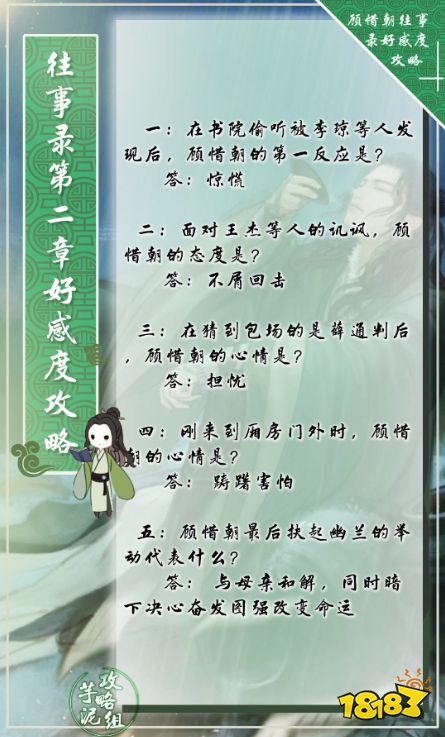 顾惜朝往事
录好感度
攻略
往事录第二章好感度攻略
一：在书院偷听被李琼等人发
现后，顾惜朝的第一反应是？
答：惊慌
二：面对王杰等人的讥讽，顾
惜朝的态度是？
答：不屑回击
三：在猜到包场的是薛通判后
，顾惜朝的心情是？
答：担忧
四：刚来到厢房门外时，顾惜
朝的心情是？
答：踌躇害怕
五：顾惜朝最后扶起幽兰的举
动代表什么？
答：与母亲和解，同时暗
下决心奋发图强改变命运
芋泥
攻略组
18183